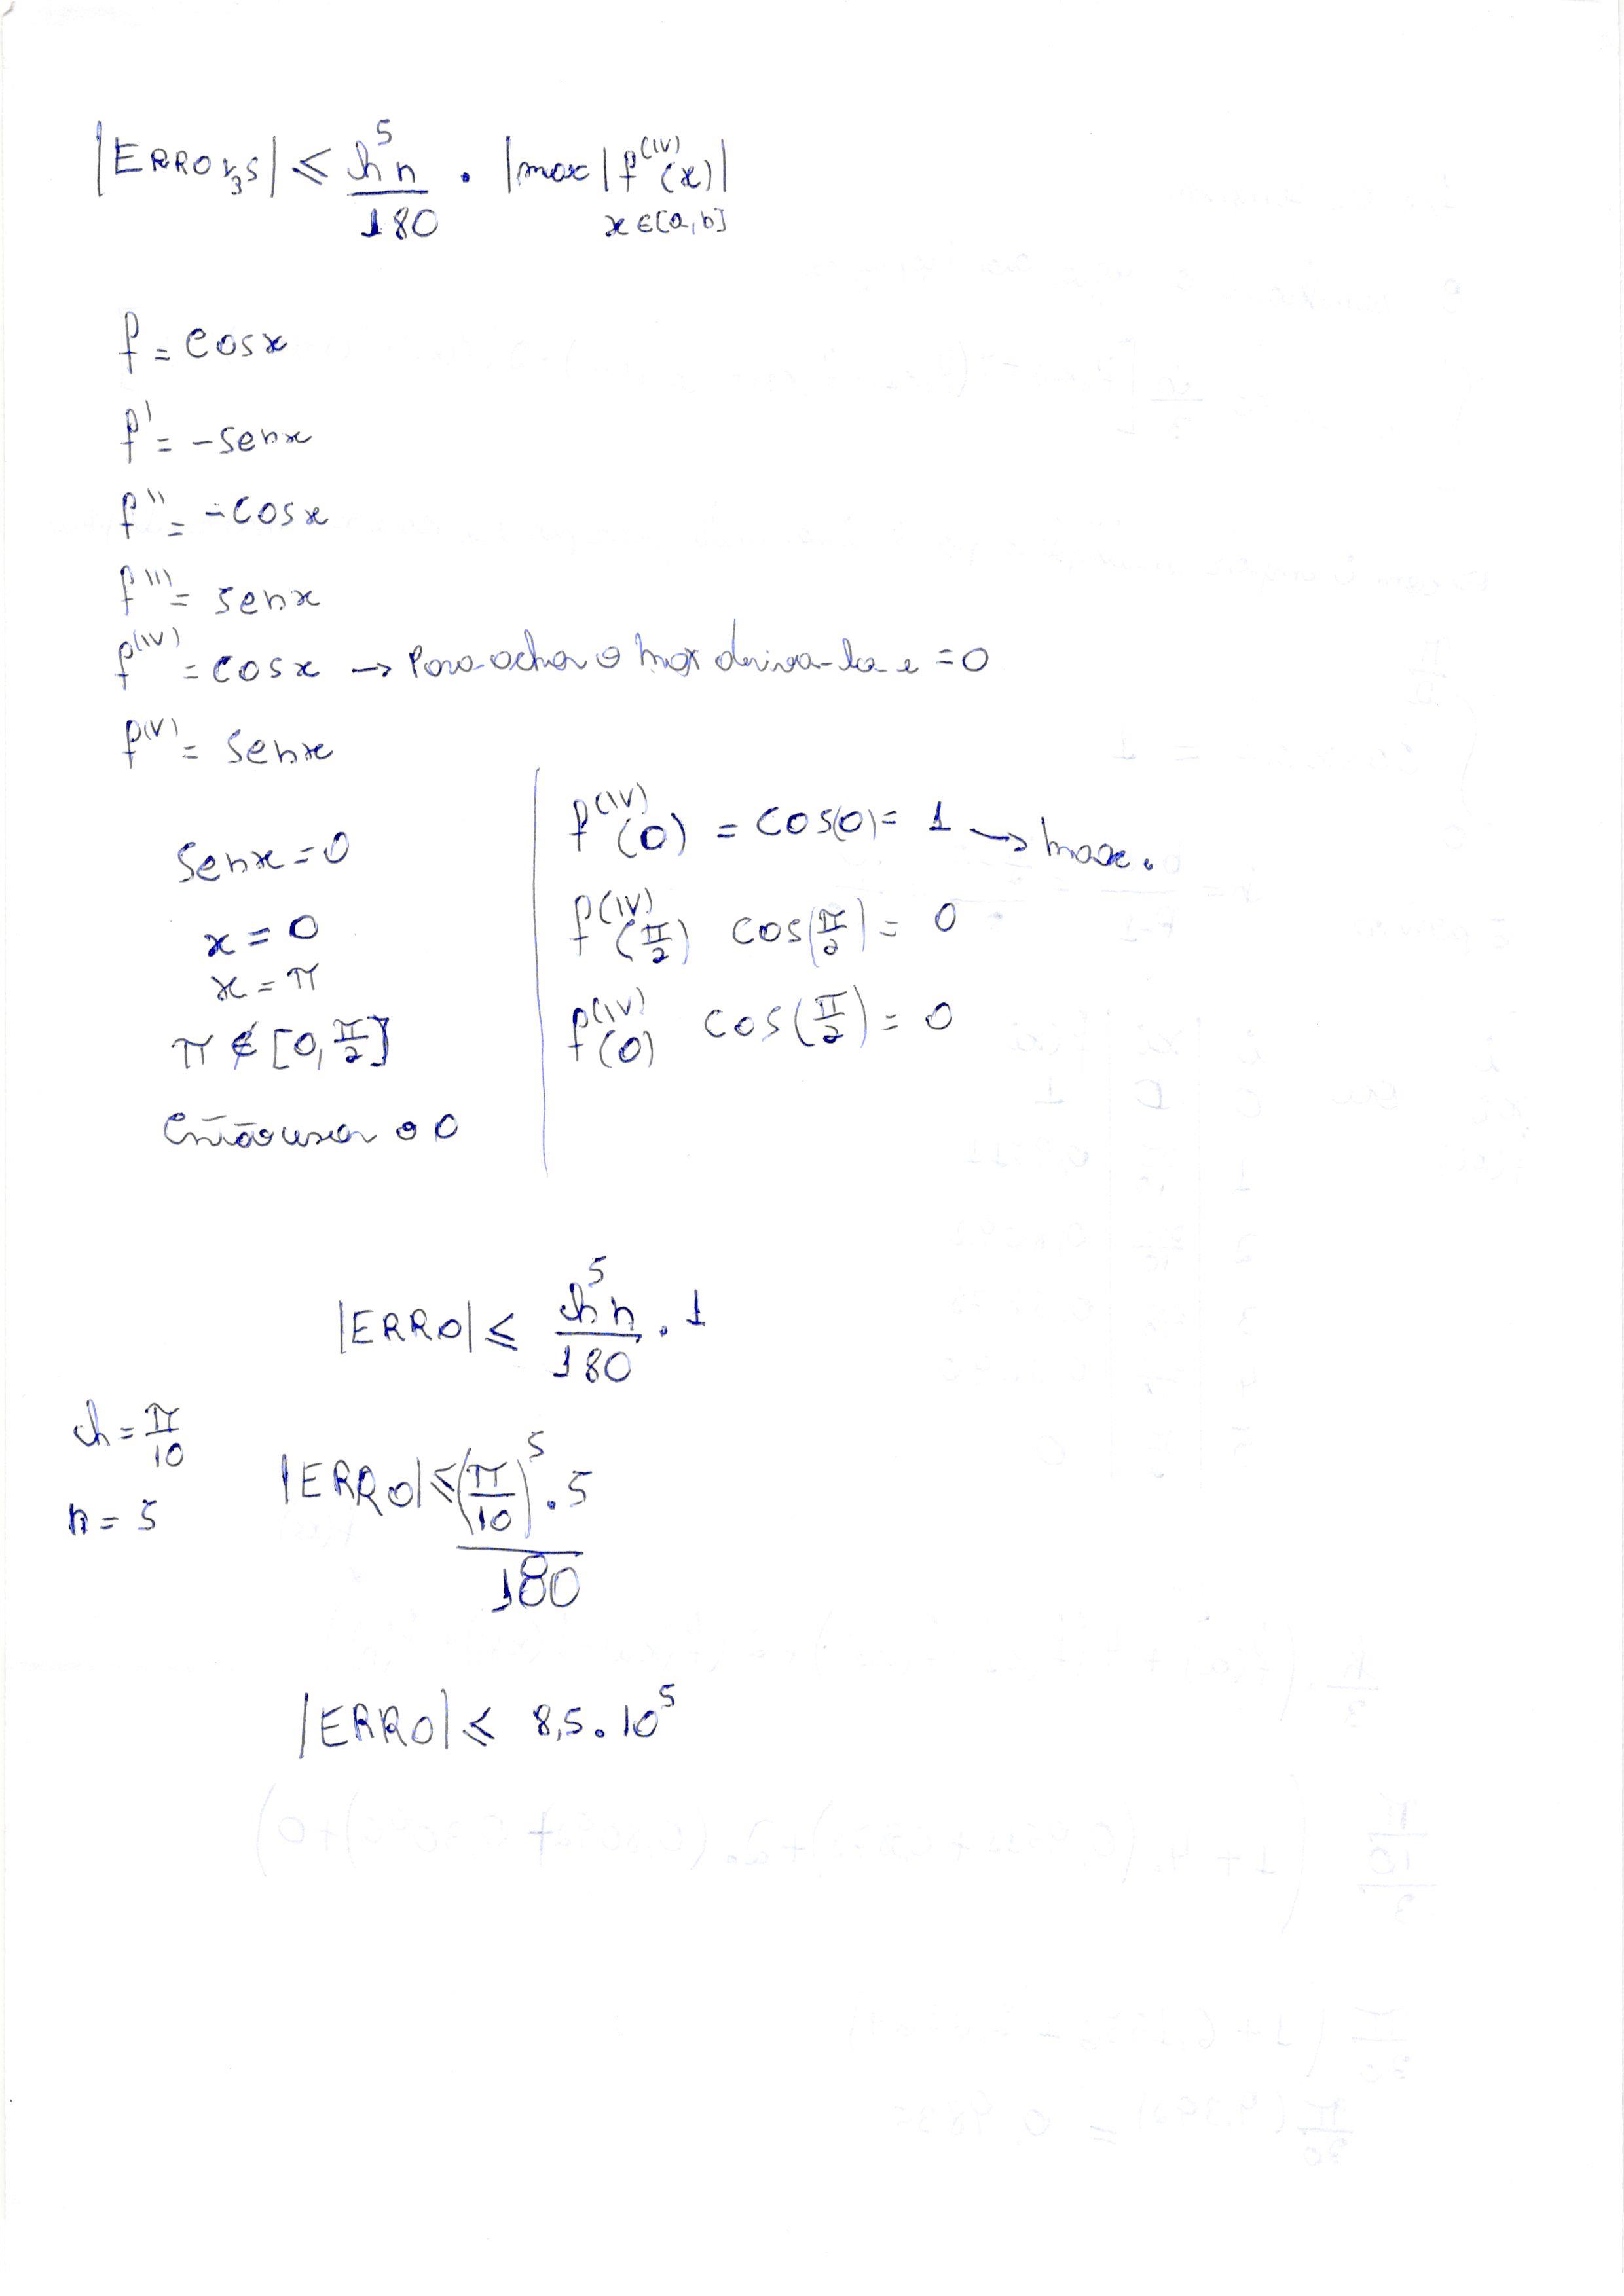 |ERRO 1/3 S| ≤ h⁵n/180 . |max |f⁽ᴵⱽ⁾(x)|
x ∈ [a,b]
f = cosx
f' = -senx
f'' = -cosx
f''' = senx
f⁽ᴵⱽ⁾ = cosx → Para achar o max deriva-la e =0
f⁽ⱽ⁾ = senx
senx = 0
x = 0
x = π
π ∉ [0, π/2]
Então usar o 0
f⁽ᴵⱽ⁾(0) = cos(0) = 1 → max.
f⁽ᴵⱽ⁾(π/2) cos(π/2) = 0
f⁽ᴵⱽ⁾(0) cos(π/2) = 0
|ERRO| ≤ h⁵n/180 . 1
h = π/10
n = 5
|ERRO| ≤ (π/10)⁵ . 5/180
|ERRO| ≤ 8,5 . 10⁵